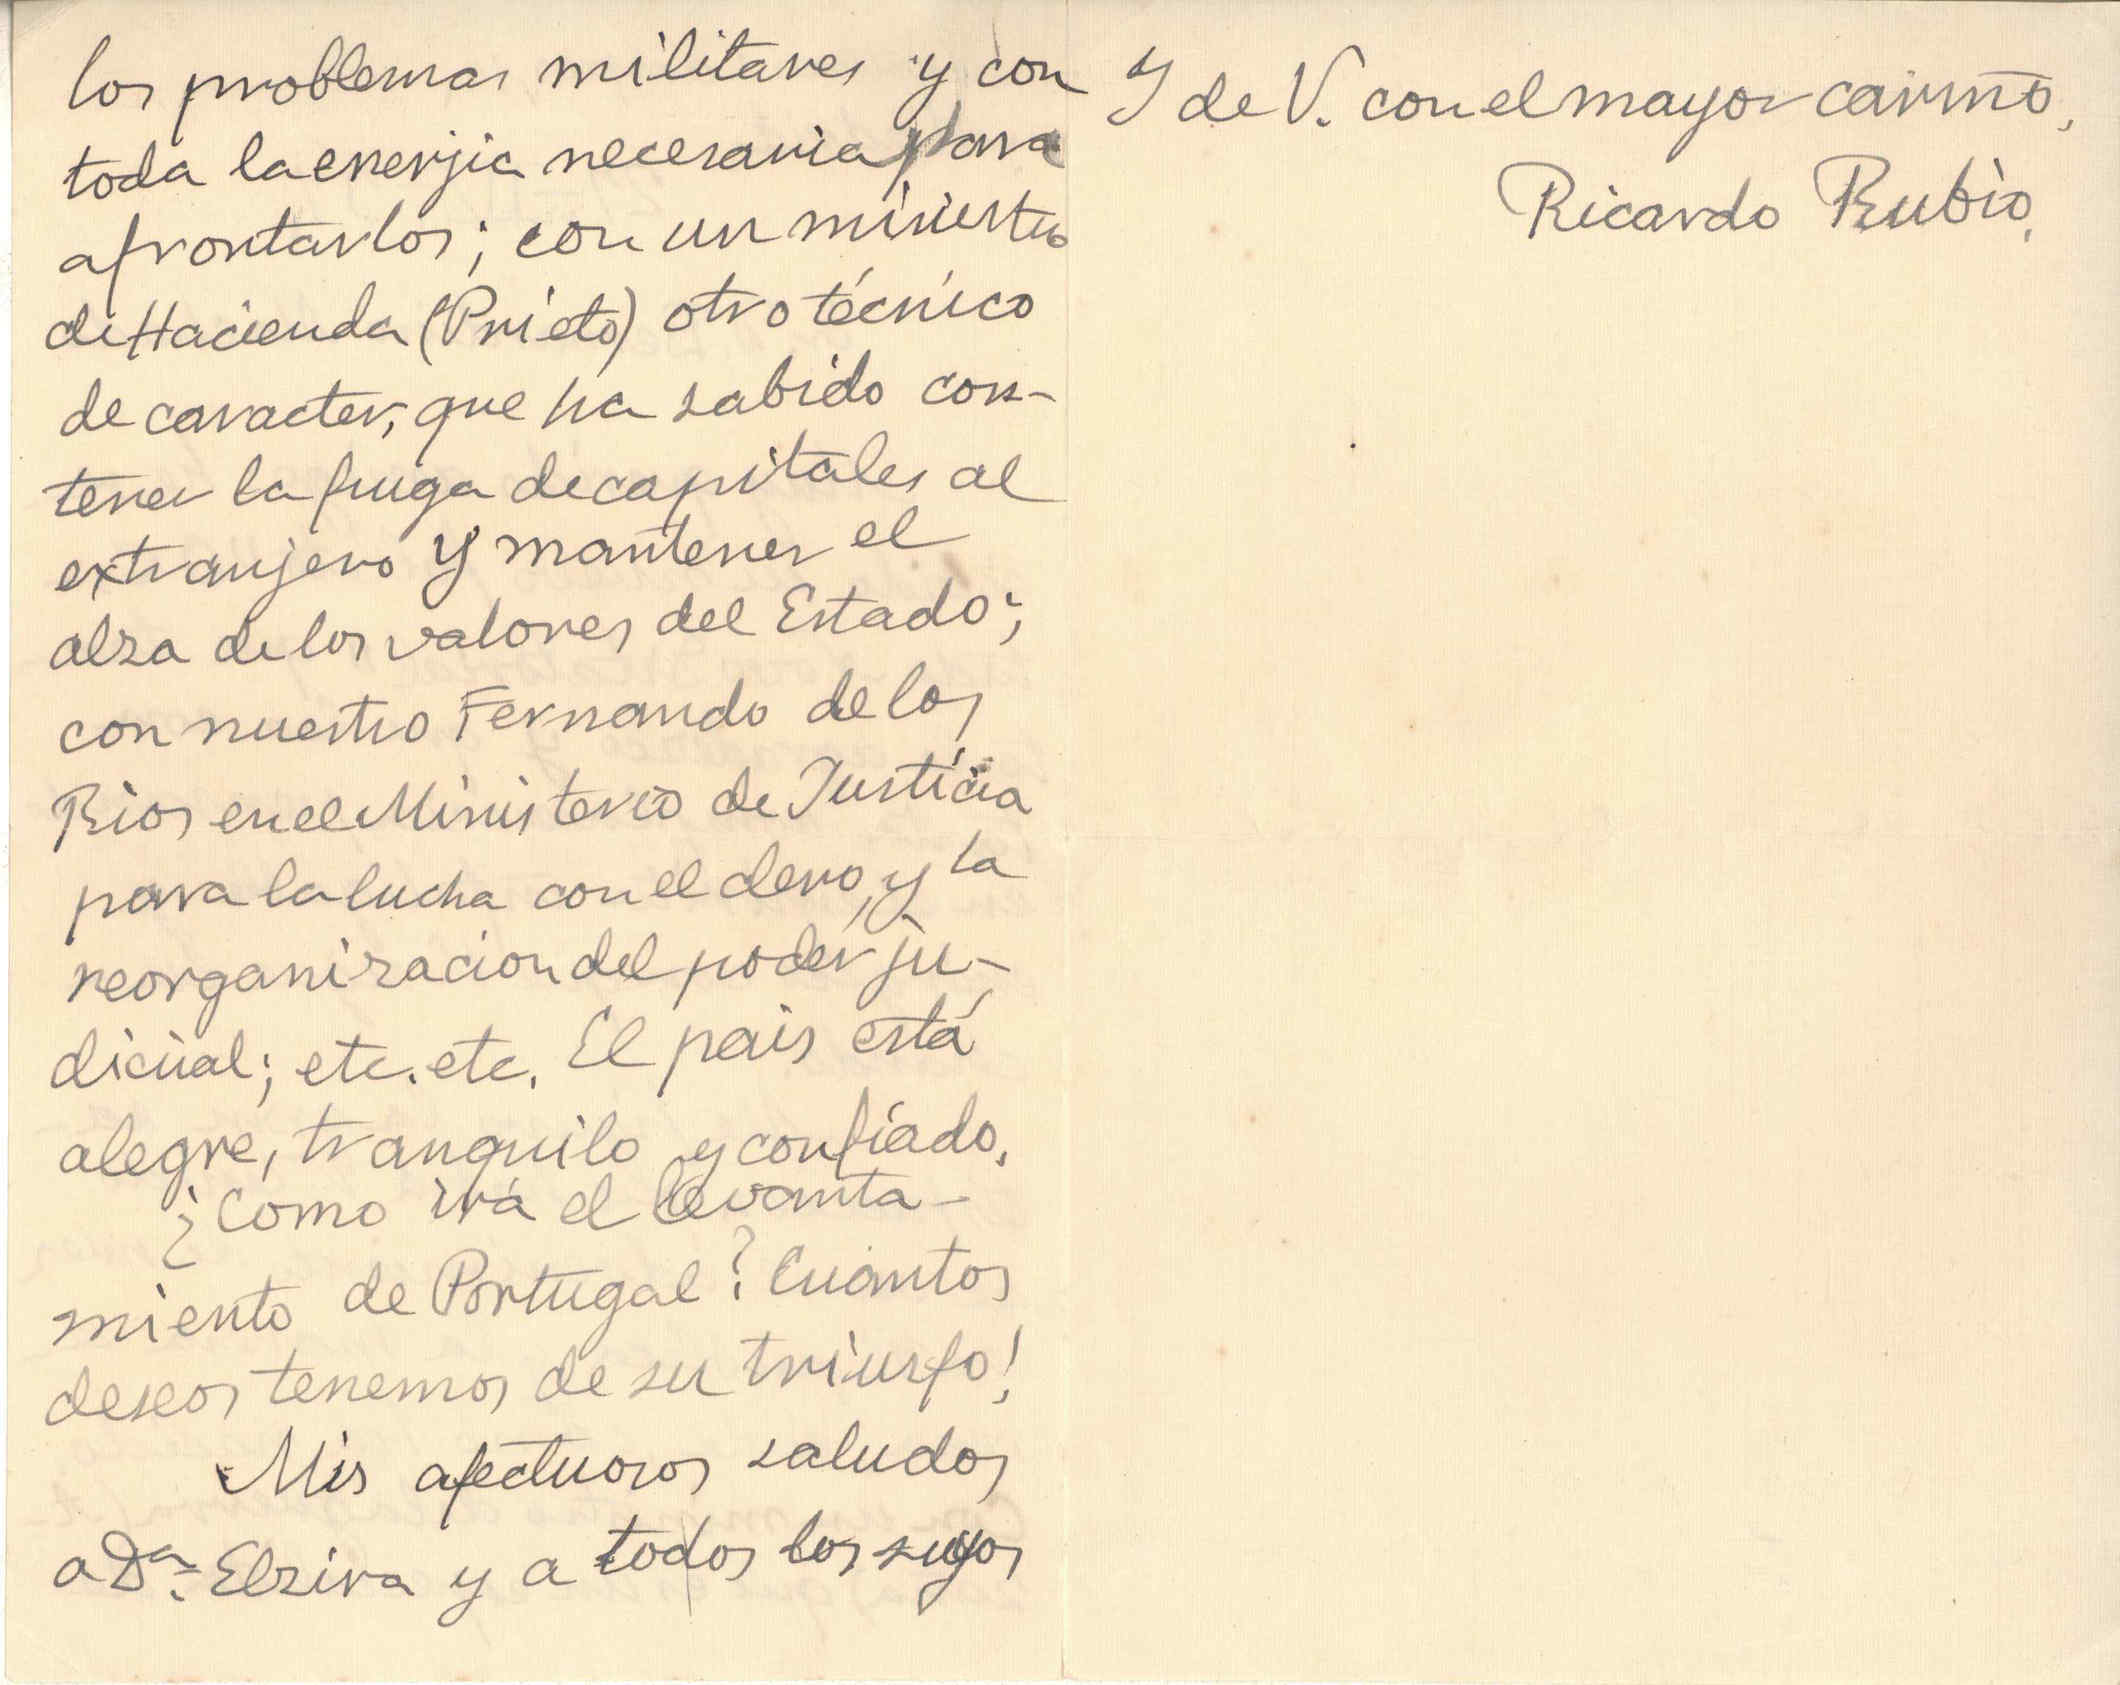 los problemas militares y con
toda la enerjia necesaria para
afrontarlos; con un ministro
de Hacienda (Prieto) otro técnico
de caracter, que ha sabido con-
tener la fuga de capitales al
extranjero y mantener el
alza de los valores del Estado;
con nuestro Fernando de los
Rios en el Ministerio de Justicia
para la lucha con el clero, y la
reorganizacion del poder ju-
dicial; etc. etc. El pais está
alegre, tranquilo y confiado.
¿Como irá el levanta-
miento de Portugal? Cuantos
deseos tenemos de su triunfo!
Mis afectuosos saludos
a Dª. Elzira y a todos los suyos
Y de V. con el mayor cariño,
Ricardo Rubio.